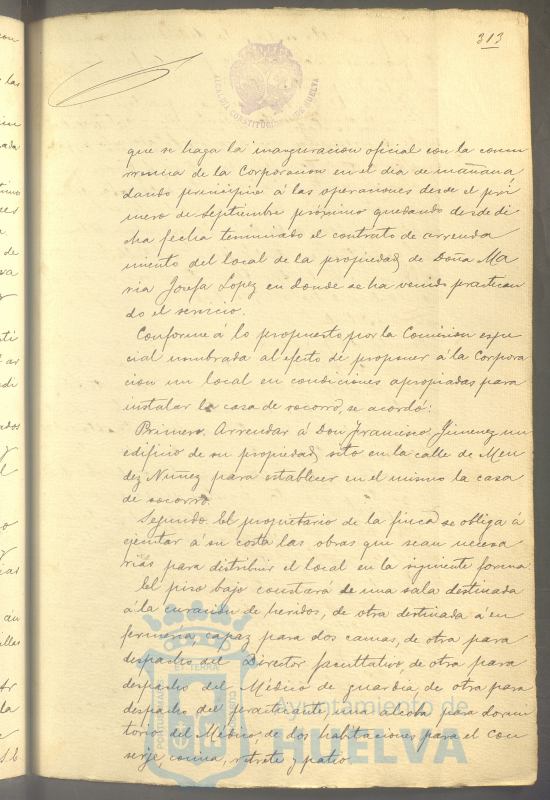 313
ALCALDIA CONSTITUCIONAL DE HUELVA
que se haga la inauguracion oficial con la concu
rrencia de la Corporacion en el dia de mañana
dando principio á las operaciones desde el pri
mero de Septiembre próximo quedando desde di
cha fecha terminado el contrato de arrenda
miento del local de la propiedad de Doña Ma
ria Josefa Lopez en donde se ha venido practican
do el servicio.
Conforme á lo propuesto por la Comision espe
cial nombrada al efecto de proponer á la Corpora
cion un local en condiciones apropiadas para
instalar la casa de socorro, se acordó:
Primero. Arrendar á Don Francisco Jimenez un
edificio de su propiedad sito en la calle de Men
dez Nuñez para establecer en el mismo la casa
de socorro.
Segundo. El propietario de la finca se obliga á
ejecutar á su costa las obras que sean necesa
rias para distribuir el local en la siguiente forma:
El piso bajo constará de una sala destinada
á la curacion de heridos, de otra destinada á en
fermeria, capaz para dos camas, de otra para
despacho del Director facultativo, de otra para
despacho del Médico de guardia, de otra para
despacho del practicante, una alcoba para dormi
torio del Médico, de dos habitaciones para el con
serje, cocina, retrete y patio.
PORTUS MARIS ET TERRAE CUSTODIA
Ayuntamiento de
HUELVA